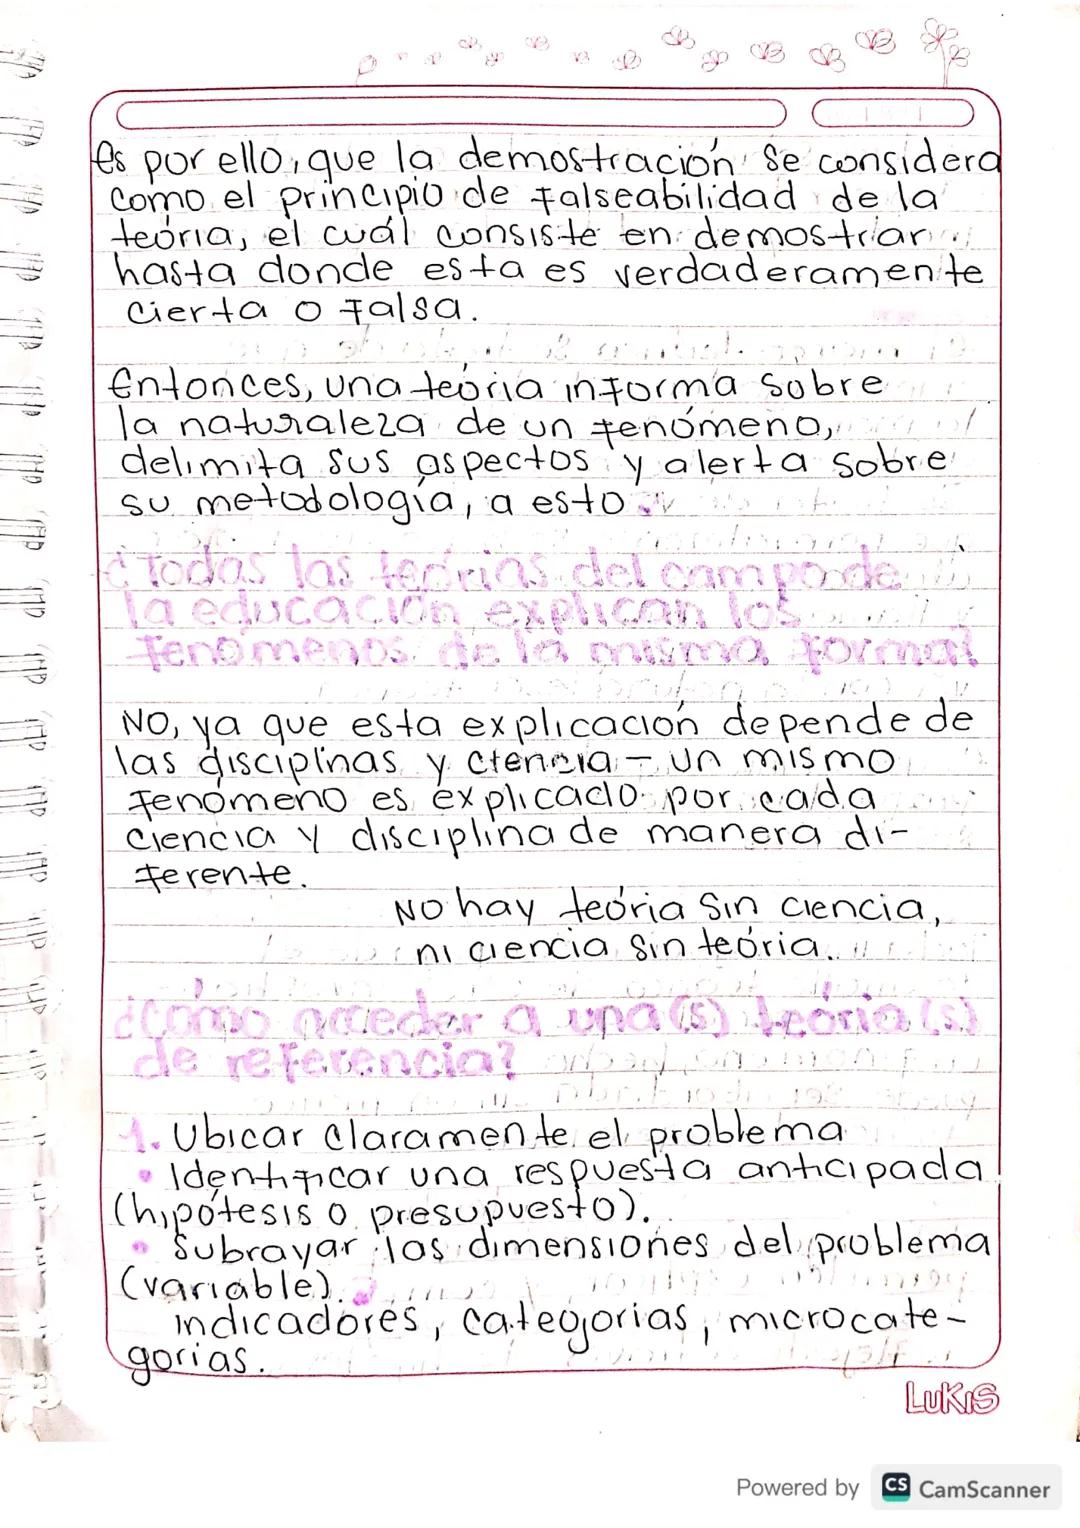 Es por ello, que la demostración se considera
como el principio de falseabilidad de la
teória, el cuál consiste en demostriar
hasta donde esta es verdaderamente
cierta o falsa.
Entonces, una teória informa sobre
la naturaleza de un fenómeno,
delimita sus aspectos y alerta sobre
su metodología, a esto
¿Todas las teórias del campo de
la educación explican los
fenómenos de la misma forma?
NO, ya que esta explicación depende de
las disciplinas y ciencia - un mismo
fenómeno es explicado por cada
ciencia y disciplina de manera di-
ferente.
No hay teória sin ciencia,
ni ciencia sin teória.
¿Cómo acceder a una(s) teória(s)
de referencia?
1. Ubicar claramente el problema
• Identificar una respuesta anticipada
(hipótesis o presupuesto).
• Subrayar las dimensiones del problema
(variable).
indicadores, categorias, microcate-
gorias.
LUKIS
Powered by CS CamScanner